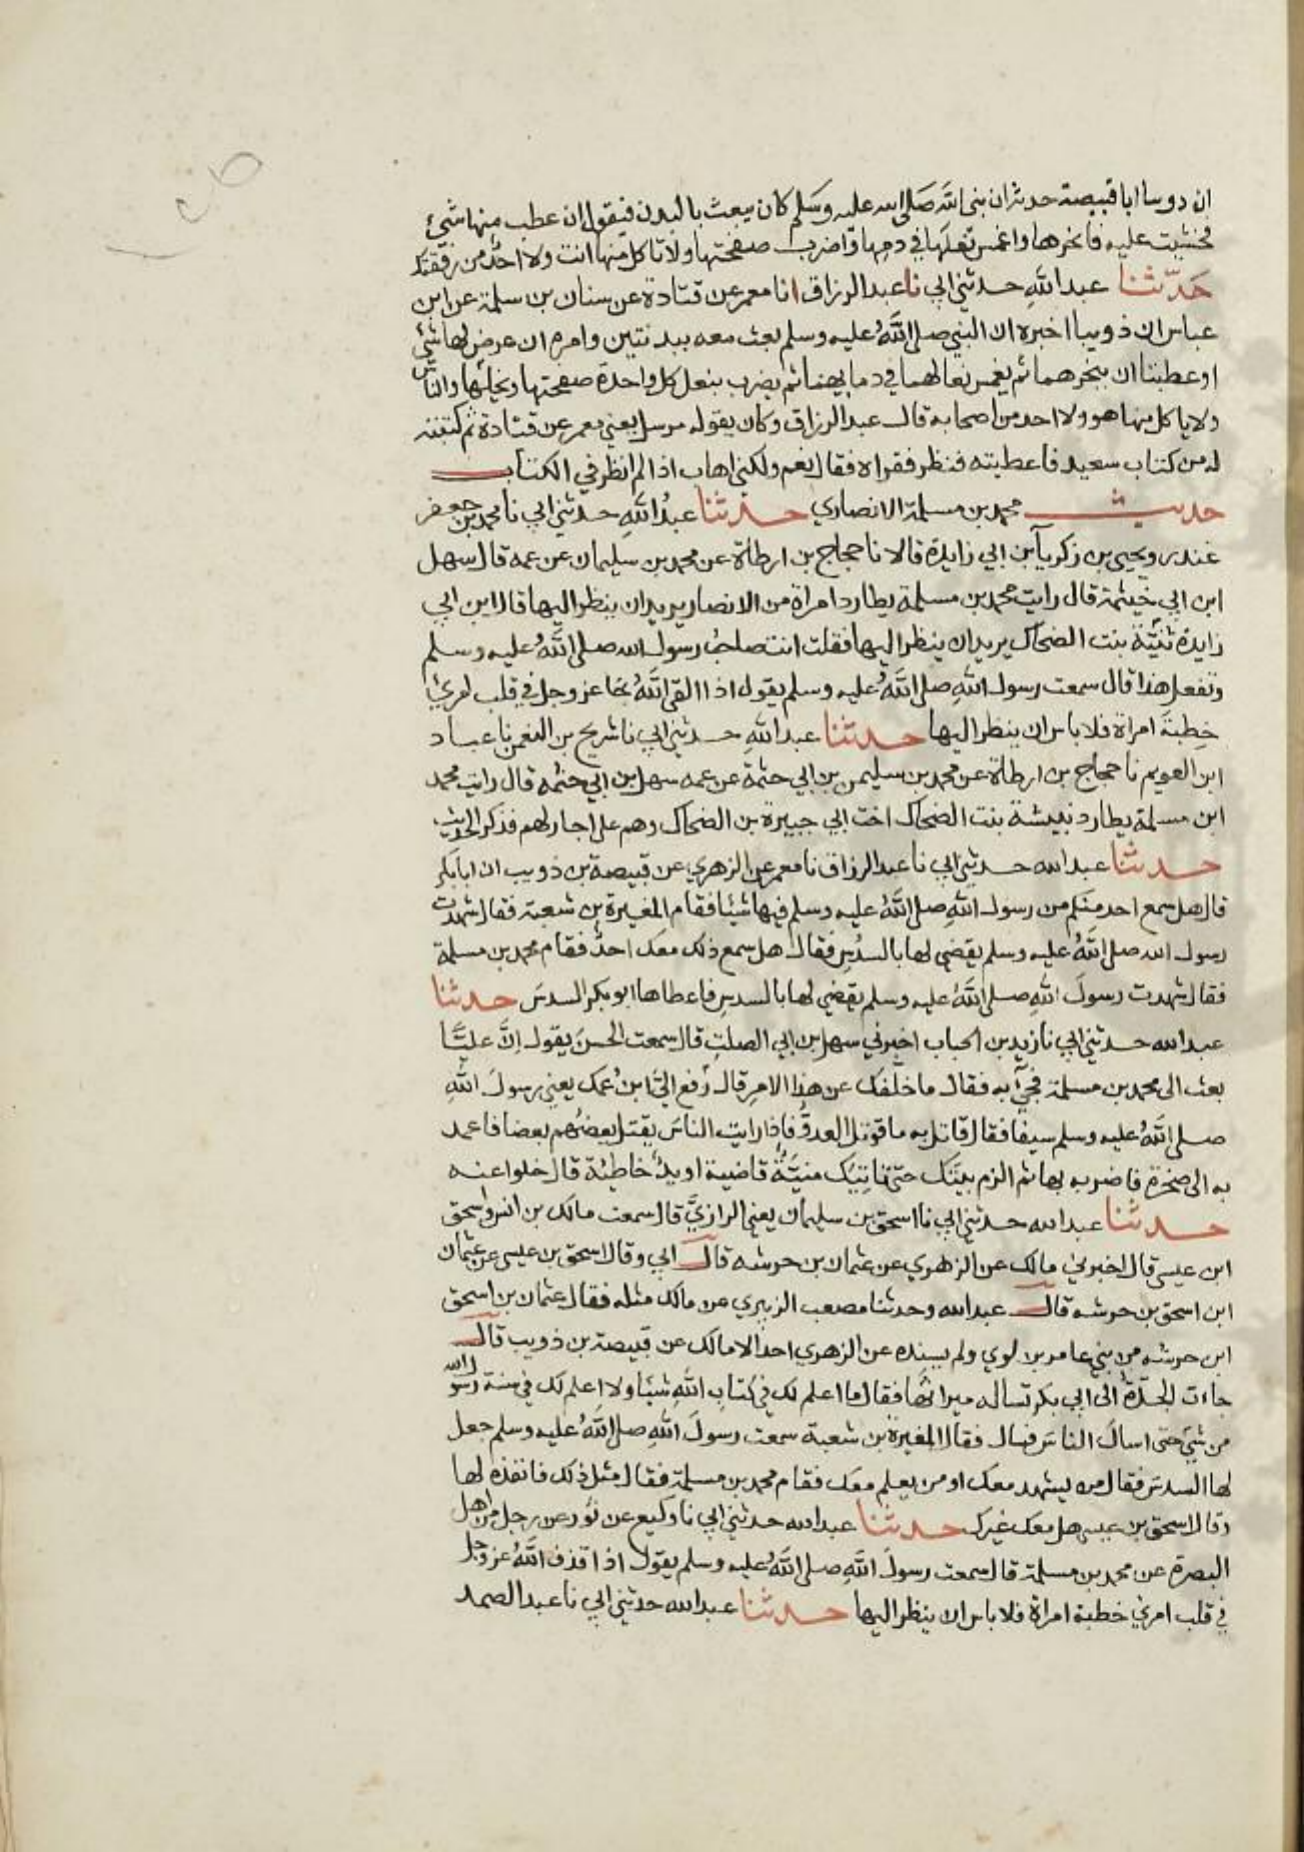 ان دوسا ابا قبيصة حدثه ان نبي الله صلى الله عليه وسلم كان يبعث بالبدن فيقول ان عطب منها شيء
فخشيت عليه فانحرها واغمس نعلها في دمها واضرب صفحتها ولا تاكل منها انت ولا احد من رفقتك
حدثنا عبد الله حدثني ابي نا عبد الرزاق انا معمر عن قتادة عن سنان بن سلمة عن ابن
عباس ان ذويبا اخبره ان النبي صلى الله عليه وسلم بعث معه ببدنتين وامره ان عرض لها شيء
او عطبتا ان ينحرهما ثم يغمس نعالهما في دمايهما ثم يضرب بنعل كل واحدة صفحتها ويخليها والناس
ولا ياكل منها هو ولا احد من اصحابه قال عبد الرزاق وكان يقوله مرسل يعني معمر عن قتادة ثم كتبته
له من كتاب سعيد فاعطيته فنظر فقراه فقال نعم ولكني اهاب اذا لم انظر في الكتاب
حديث محمد بن مسلمة الانصاري حدثنا عبد الله حدثني ابي نا محمد بن جعفر
غندر ويحيى بن زكريا بن ابي زايدة قالا نا حجاج بن ارطاة عن محمد بن سليمان عن عمه قال سهل
ابن ابي خيثمة قال رايت محمد بن مسلمة يطارد امراة من الانصار يريد ان ينظر اليها قال ابن ابي
زايدة ثبيتة بنت الضحاك يريد ان ينظر اليها فقلت انت صاحب رسول الله صلى الله عليه وسلم
وتفعل هذا قال سمعت رسول الله صلى الله عليه وسلم يقول اذا القى الله عز وجل في قلب امرئ
خطبة امراة فلا باس ان ينظر اليها حدثنا عبد الله حدثني ابي نا شريح بن النعمن نا عباد
ابن العوام نا حجاج بن ارطاة عن محمد بن سليمن بن ابي حثمة عن عمه سهل بن ابي حثمه قال رايت محمد
ابن مسلمة يطارد نبيشة بنت الضحاك اخت ابي جبيرة بن الضحاك وهم على اجار لهم فذكر الحديث
حدثنا عبد الله حدثني ابي نا عبد الرزاق نا معمر عن الزهري عن قبيصة بن ذويب ان ابا بكر
قال هل سمع احد منكم من رسول الله صلى الله عليه وسلم فيها شيئا فقام المغيرة بن شعبة فقال شهدت
رسول الله صلى الله عليه وسلم يقضي لها بالسدس فقال هل سمع ذلك معك احد فقام محمد بن مسلمة
فقال شهدت رسول الله صلى الله عليه وسلم يقضي لها بالسدس فاعطاها ابو بكر السدس حدثنا
عبد الله حدثني ابي نا زيد بن الحباب اخبرني سهل بن ابي الصلت قال سمعت الحسن يقول ان عليا
بعث الى محمد بن مسلمة فجيء به فقال ما خلفك عن هذا الامر قال دفع الي ابن عمك يعني رسول الله
صلى الله عليه وسلم سيفا فقال قاتل به ما قوتل العدو فاذا رايت الناس يقتل بعضهم بعضا فاعمد
به الى صخرة فاضربه بها ثم الزم بيتك حتى تاتيك منية قاضية او يد خاطئة قال خلوا عنه
حدثنا عبد الله حدثني ابي نا اسحق بن سليمان يعني الرازي قال سمعت مالك بن انس واسحق
ابن عيسى قال اخبرني مالك عن الزهري عن عثمان بن خرشه قال ابي وقال اسحق بن عيسى عن عثمان
ابن اسحق بن خرشه قال عبد الله وحدثنا مصعب الزبيري عن مالك مثله فقال عثمان بن اسحق
ابن خرشه من بني عامر بن لوي ولم يسنده عن الزهري احد الا مالك عن قبيصة بن ذويب قال
جاءت الجدة الى ابي بكر تساله ميراثها فقال ما اعلم لك في كتاب الله شيئا ولا اعلم لك في سنة رسول الله
من شيء حتى اسال الناس فسال فقال المغيرة بن شعبة سمعت رسول الله صلى الله عليه وسلم جعل
لها السدس فقال من يشهد معك او من يعلم معك فقام محمد بن مسلمة فقال مثل ذلك فانفذه لها
وقال اسحق بن عيسى هل معك غيرك حدثنا عبد الله حدثني ابي نا وكيع عن ثور عن رجل من اهل
البصرة عن محمد بن مسلمة قال سمعت رسول الله صلى الله عليه وسلم يقول اذا قذف الله عز وجل
في قلب امرئ خطبة امراة فلا باس ان ينظر اليها حدثنا عبد الله حدثني ابي نا عبد الصمد